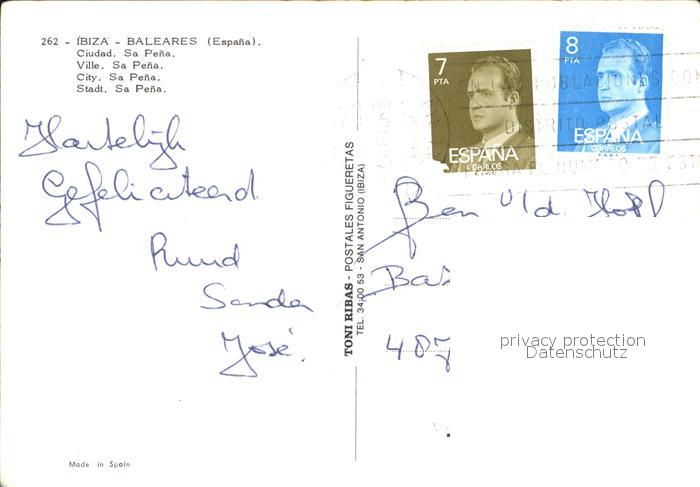 262 - ÍBIZA - BALEARES (España).
Ciudad. Sa Peña.
Ville. Sa Peña.
City. Sa Peña.
Stadt. Sa Peña.
Hartelijk
Gefeliciteerd
Ruud
Sandra
José.
Made in Spain
TONI RIBAS - POSTALES FIGUERETAS
TEL. 34 00 53 - SAN ANTONIO (IBIZA)
7
PTA
ESPAÑA
CORREOS
8
PTA
ESPAÑA
CORREOS
DISTRITO POSTAL
Ben v/d
487
privacy protection
Datenschutz